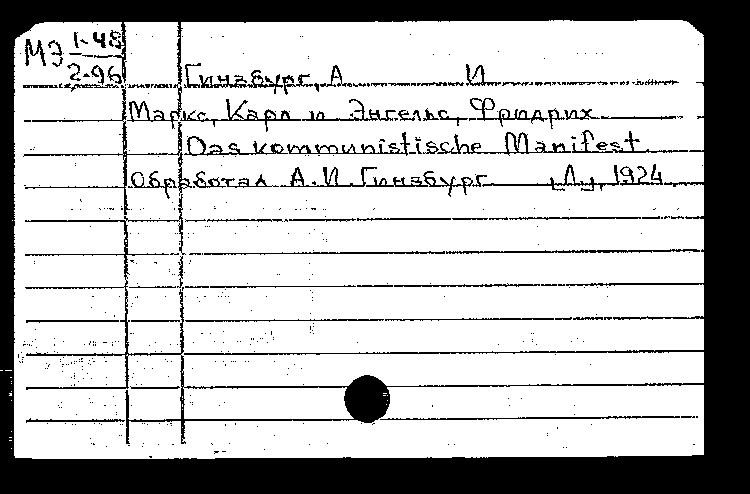 МЭ 1-48
2-96
Гинзбург, А И
Маркс, Карл и Энгельс, Фридрих.
Das kommunistische Manifest.
Обработал А.И. Гинзбург. [Л.], 1924.